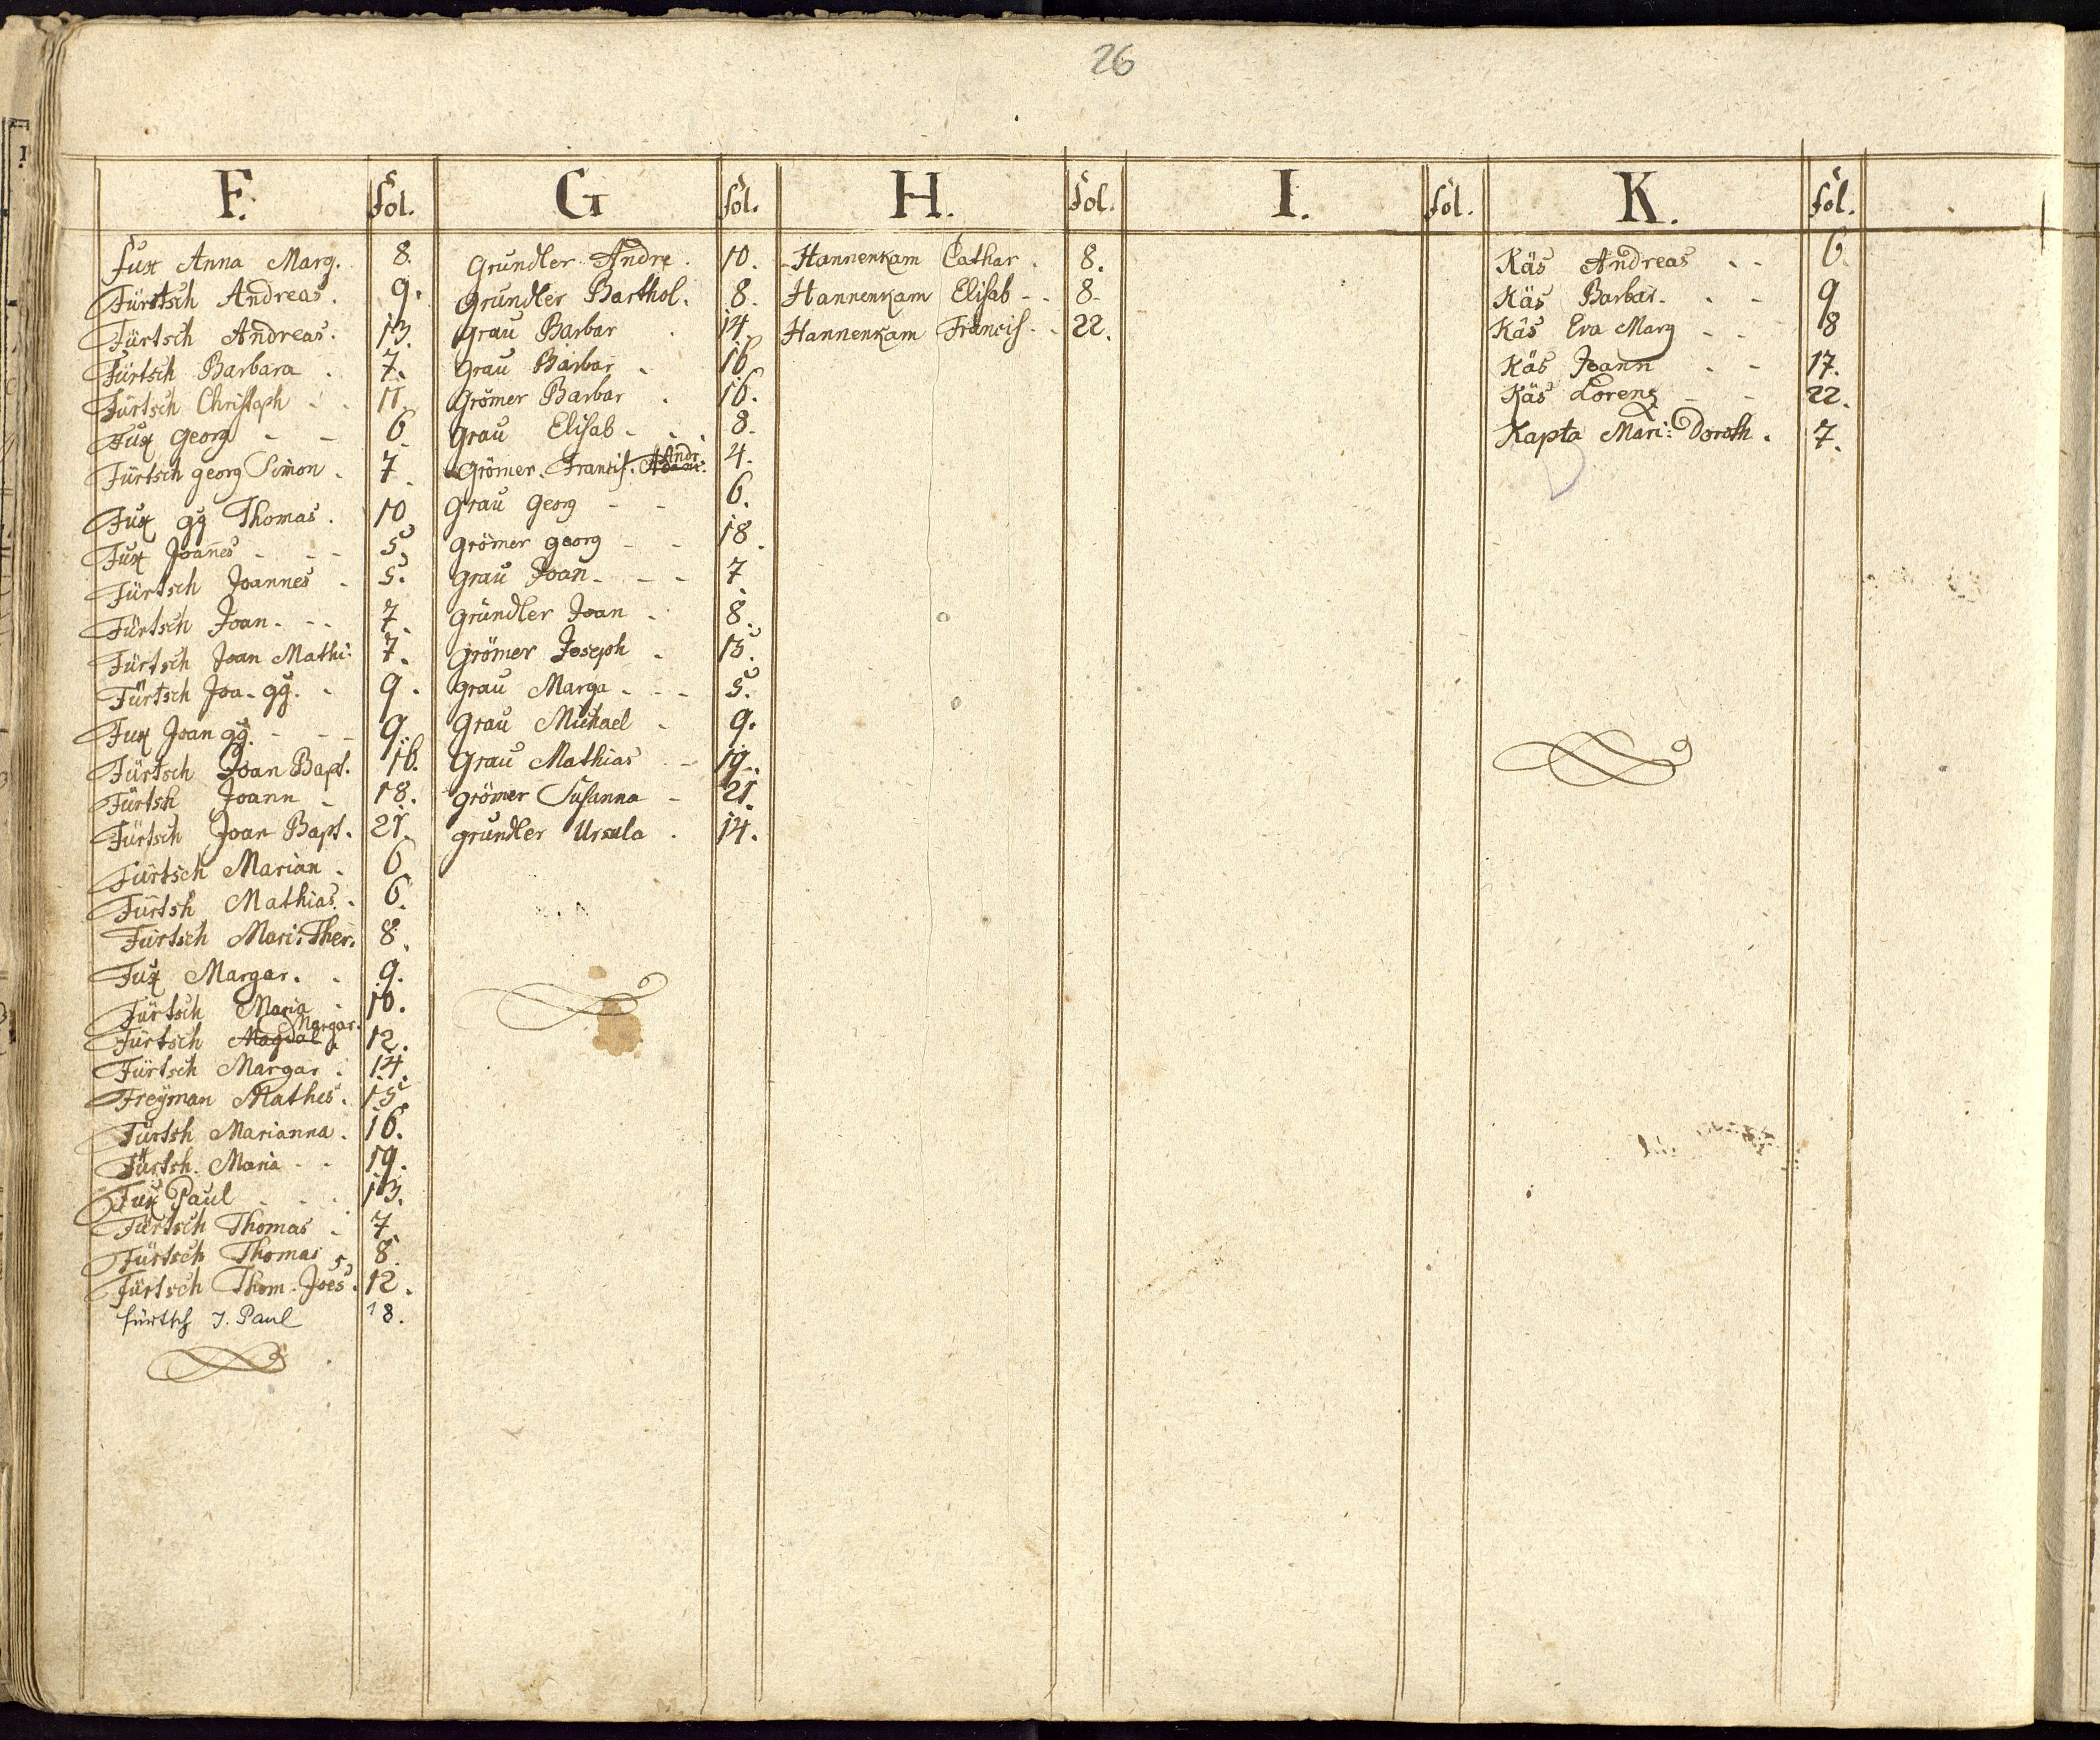 26
F. fol.
Fux Anna Marg. 8.
Fürtsch Andreas. 9.
Fürtsch Andreas. 13.
Fürtsch Barbara . 7.
Fürtsch Christoph - . 11.
Fux Georg - - 6.
Fürtsch georg Simon . 7.
Fux gg Thomas. 10
Fux Joannes - - - 5.
Fürtsch Joannes - 5.
Fürtsch Joan. - - 7.
Fürtsch Joan Mathi: 7.
Fürtsch Joa. gg. - 9.
Fux Joan gg. - - - 9.
Fürtsch Joan Bapt. 16.
Fürtsh Joann - 18.
Fürtsch Joan Bapt. 21.
Fürtsch Marian . 6
Fürtsh Mathias. . 6.
Fürtsch Mari: Ther. 8.
Fux Margar. . 9.
Fürtsch Maria - 10.
Fürtsch Magdal Margar. 12.
Fürtsch Margar . 14.
Freyman Mathes. 15.
Fürtsh Marianna . 16.
Fürtsh. Maria - - 19.
Fux Paul - - . 13.
Fürtsch Thomas . 7
Fürtsch Thomas 8.
Fürtsch Thom. Joes. 12.
fürtsch J. Paul 18.
G fol.
Grundler Andre . 10.
Grundler Barthol. 8.
Grau Barbar . 14.
Grau Barbar . 16
Grömer Barbar . 16.
Grau Elisab - . 8.
Grömer. Francis. Andr. 4.
Grau Georg - - 6.
Grömer georg - - 18.
Grau Joan - - - 7
Gründler Joan . 8.
Grömer Joseph . 13.
Grau Marga - - - 5.
Grau Michael - 9.
Grau Mathias - - 19.
Grömer Susanna - 21.
grundler Ursula . 14.
H. fol.
Hannenkam Cathar . 8.
Hannenkam Elisab - . 8.
Hannenkam Francis - . 22.
I. fol.
K. fol.
Käs Andreas . - 6.
Käs Barbar. . - 9
Käs Eva Marg - - 8
Käs Joann . - 17.
Käs Lorenz - - 22.
Kapta Mari: Doroth . 7.